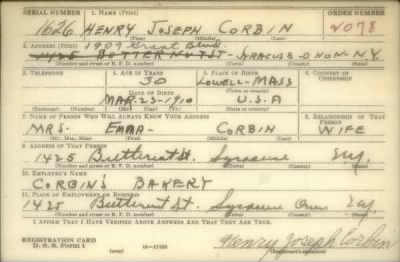 SERIAL NUMBER 1. NAME (Print) ORDER NUMBER
1626 HENRY JOSEPH CORBIN 2078
(First) (Middle) (Last)
2. ADDRESS (Print) 1909 Grant Blvd.
1425 BUTTERNUT ST. SYRACUSE - ONON - N.Y.
(Number and street or R. F. D. number) (Town) (County) (State)
3. TELEPHONE 4. AGE IN YEARS 5. PLACE OF BIRTH 6. COUNTRY OF CITIZENSHIP
30 LOWELL - MASS
DATE OF BIRTH (Town or county)
MAR-23-1910 U.S.A
(Exchange) (Number) (Mo.) (Day) (Yr.) (State or country)
7. NAME OF PERSON WHO WILL ALWAYS KNOW YOUR ADDRESS 8. RELATIONSHIP OF THAT PERSON
MRS. EMMA CORBIN WIFE
(Mr., Mrs., Miss) (First) (Middle) (Last)
9. ADDRESS OF THAT PERSON
1425 Butternut St. Syracuse N.Y.
(Number and street or R. F. D. number) (Town) (County) (State)
10. EMPLOYER'S NAME
CORBIN'S BAKERY
11. PLACE OF EMPLOYMENT OR BUSINESS
1425 Butternut St. Syracuse Onon N.Y.
(Number and street or R. F. D. number) (Town) (County) (State)
I AFFIRM THAT I HAVE VERIFIED ABOVE ANSWERS AND THAT THEY ARE TRUE.
REGISTRATION CARD
D. S. S. Form 1 (over) Henry Joseph Corbin
(Registrant's signature)